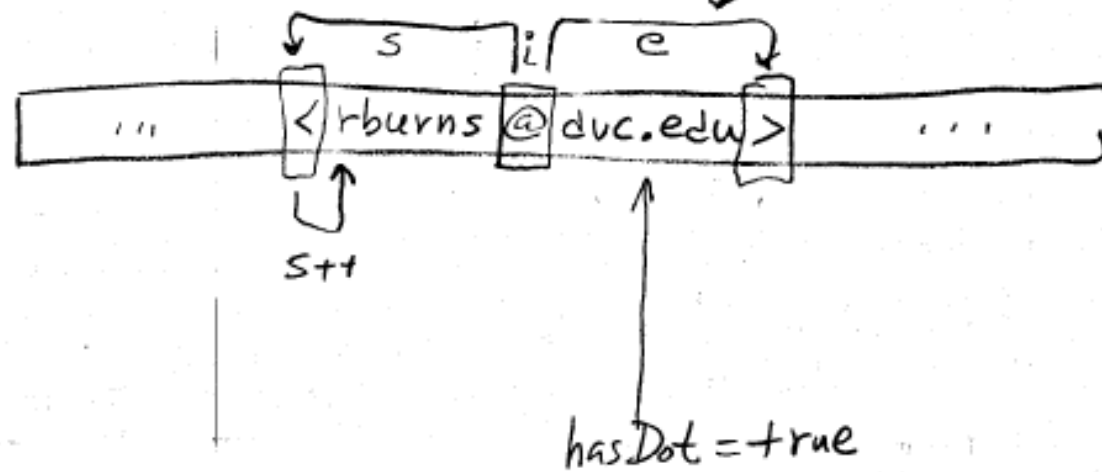 s i e
... < rburns @ dvc.edu > ...
s++
hasDot = true